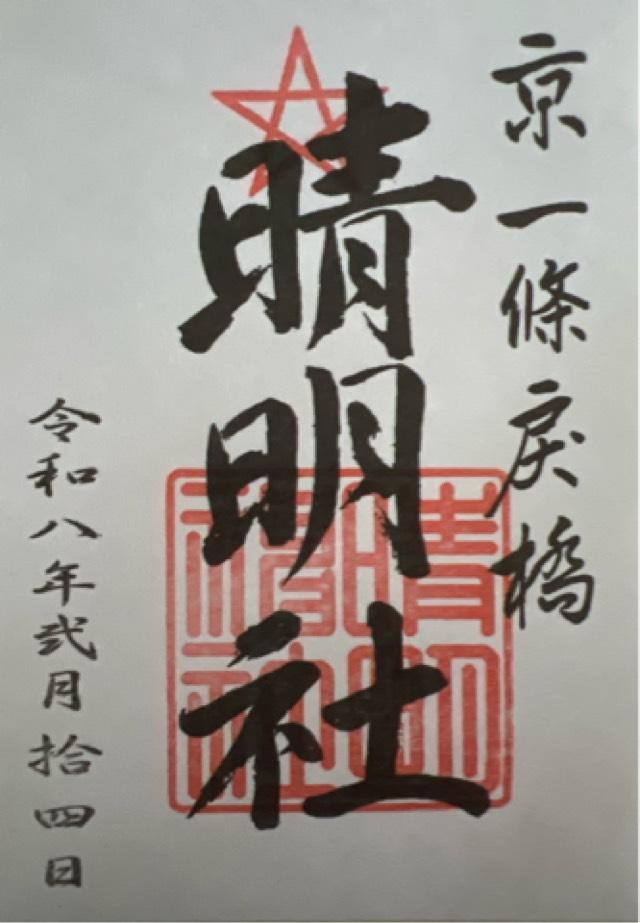 京一條戻橋
晴明社
晴明
精社
令和八年弐月拾四日